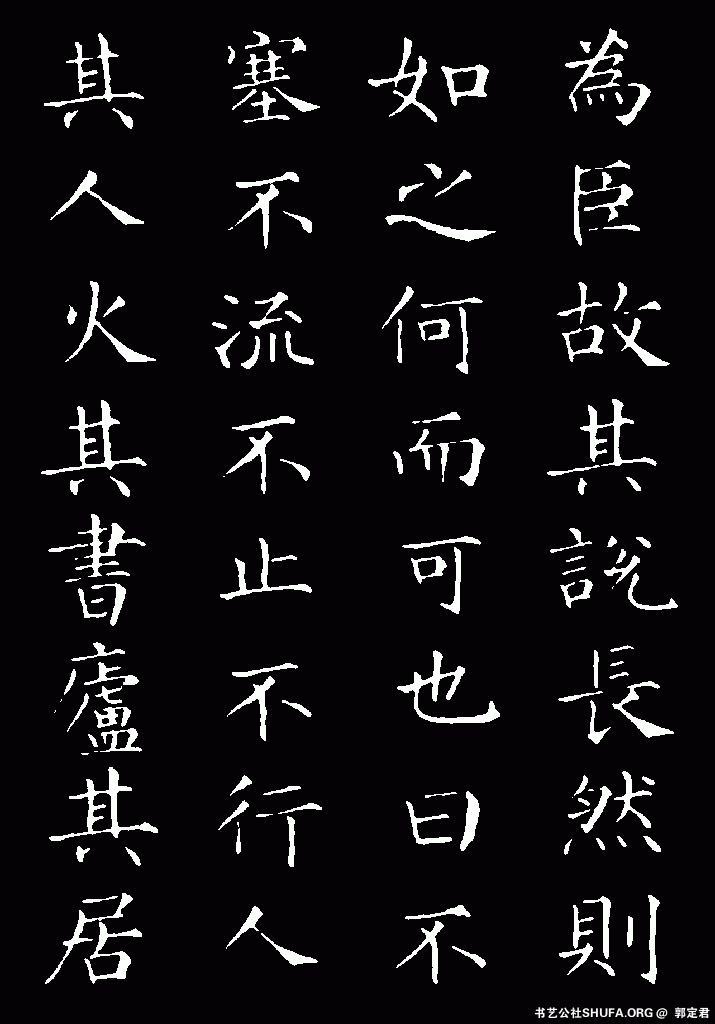 為臣故其說長然則
如之何而可也曰不
塞不流不止不行人
其人火其書廬其居
书艺公社SHUFA.ORG @ 郭定君